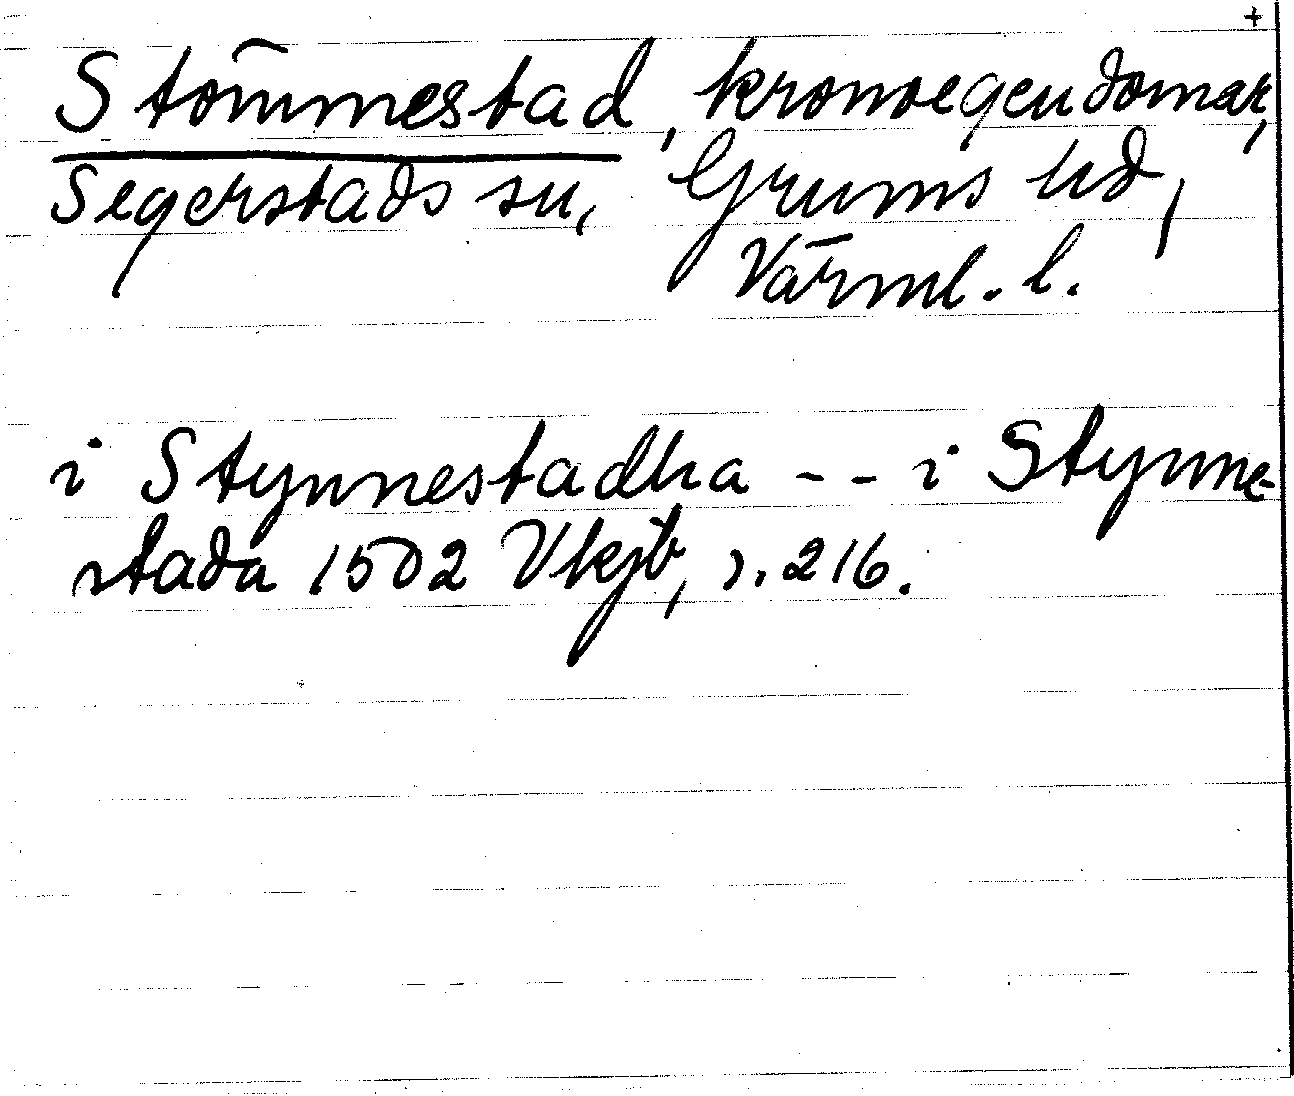 +
Stömmestad, kronoegendomar,
Segerstads sn, Grums hd,
Värml. l.
i Stynnestadha -- i Stynne-
stada 1502 Vkjb, s. 216.